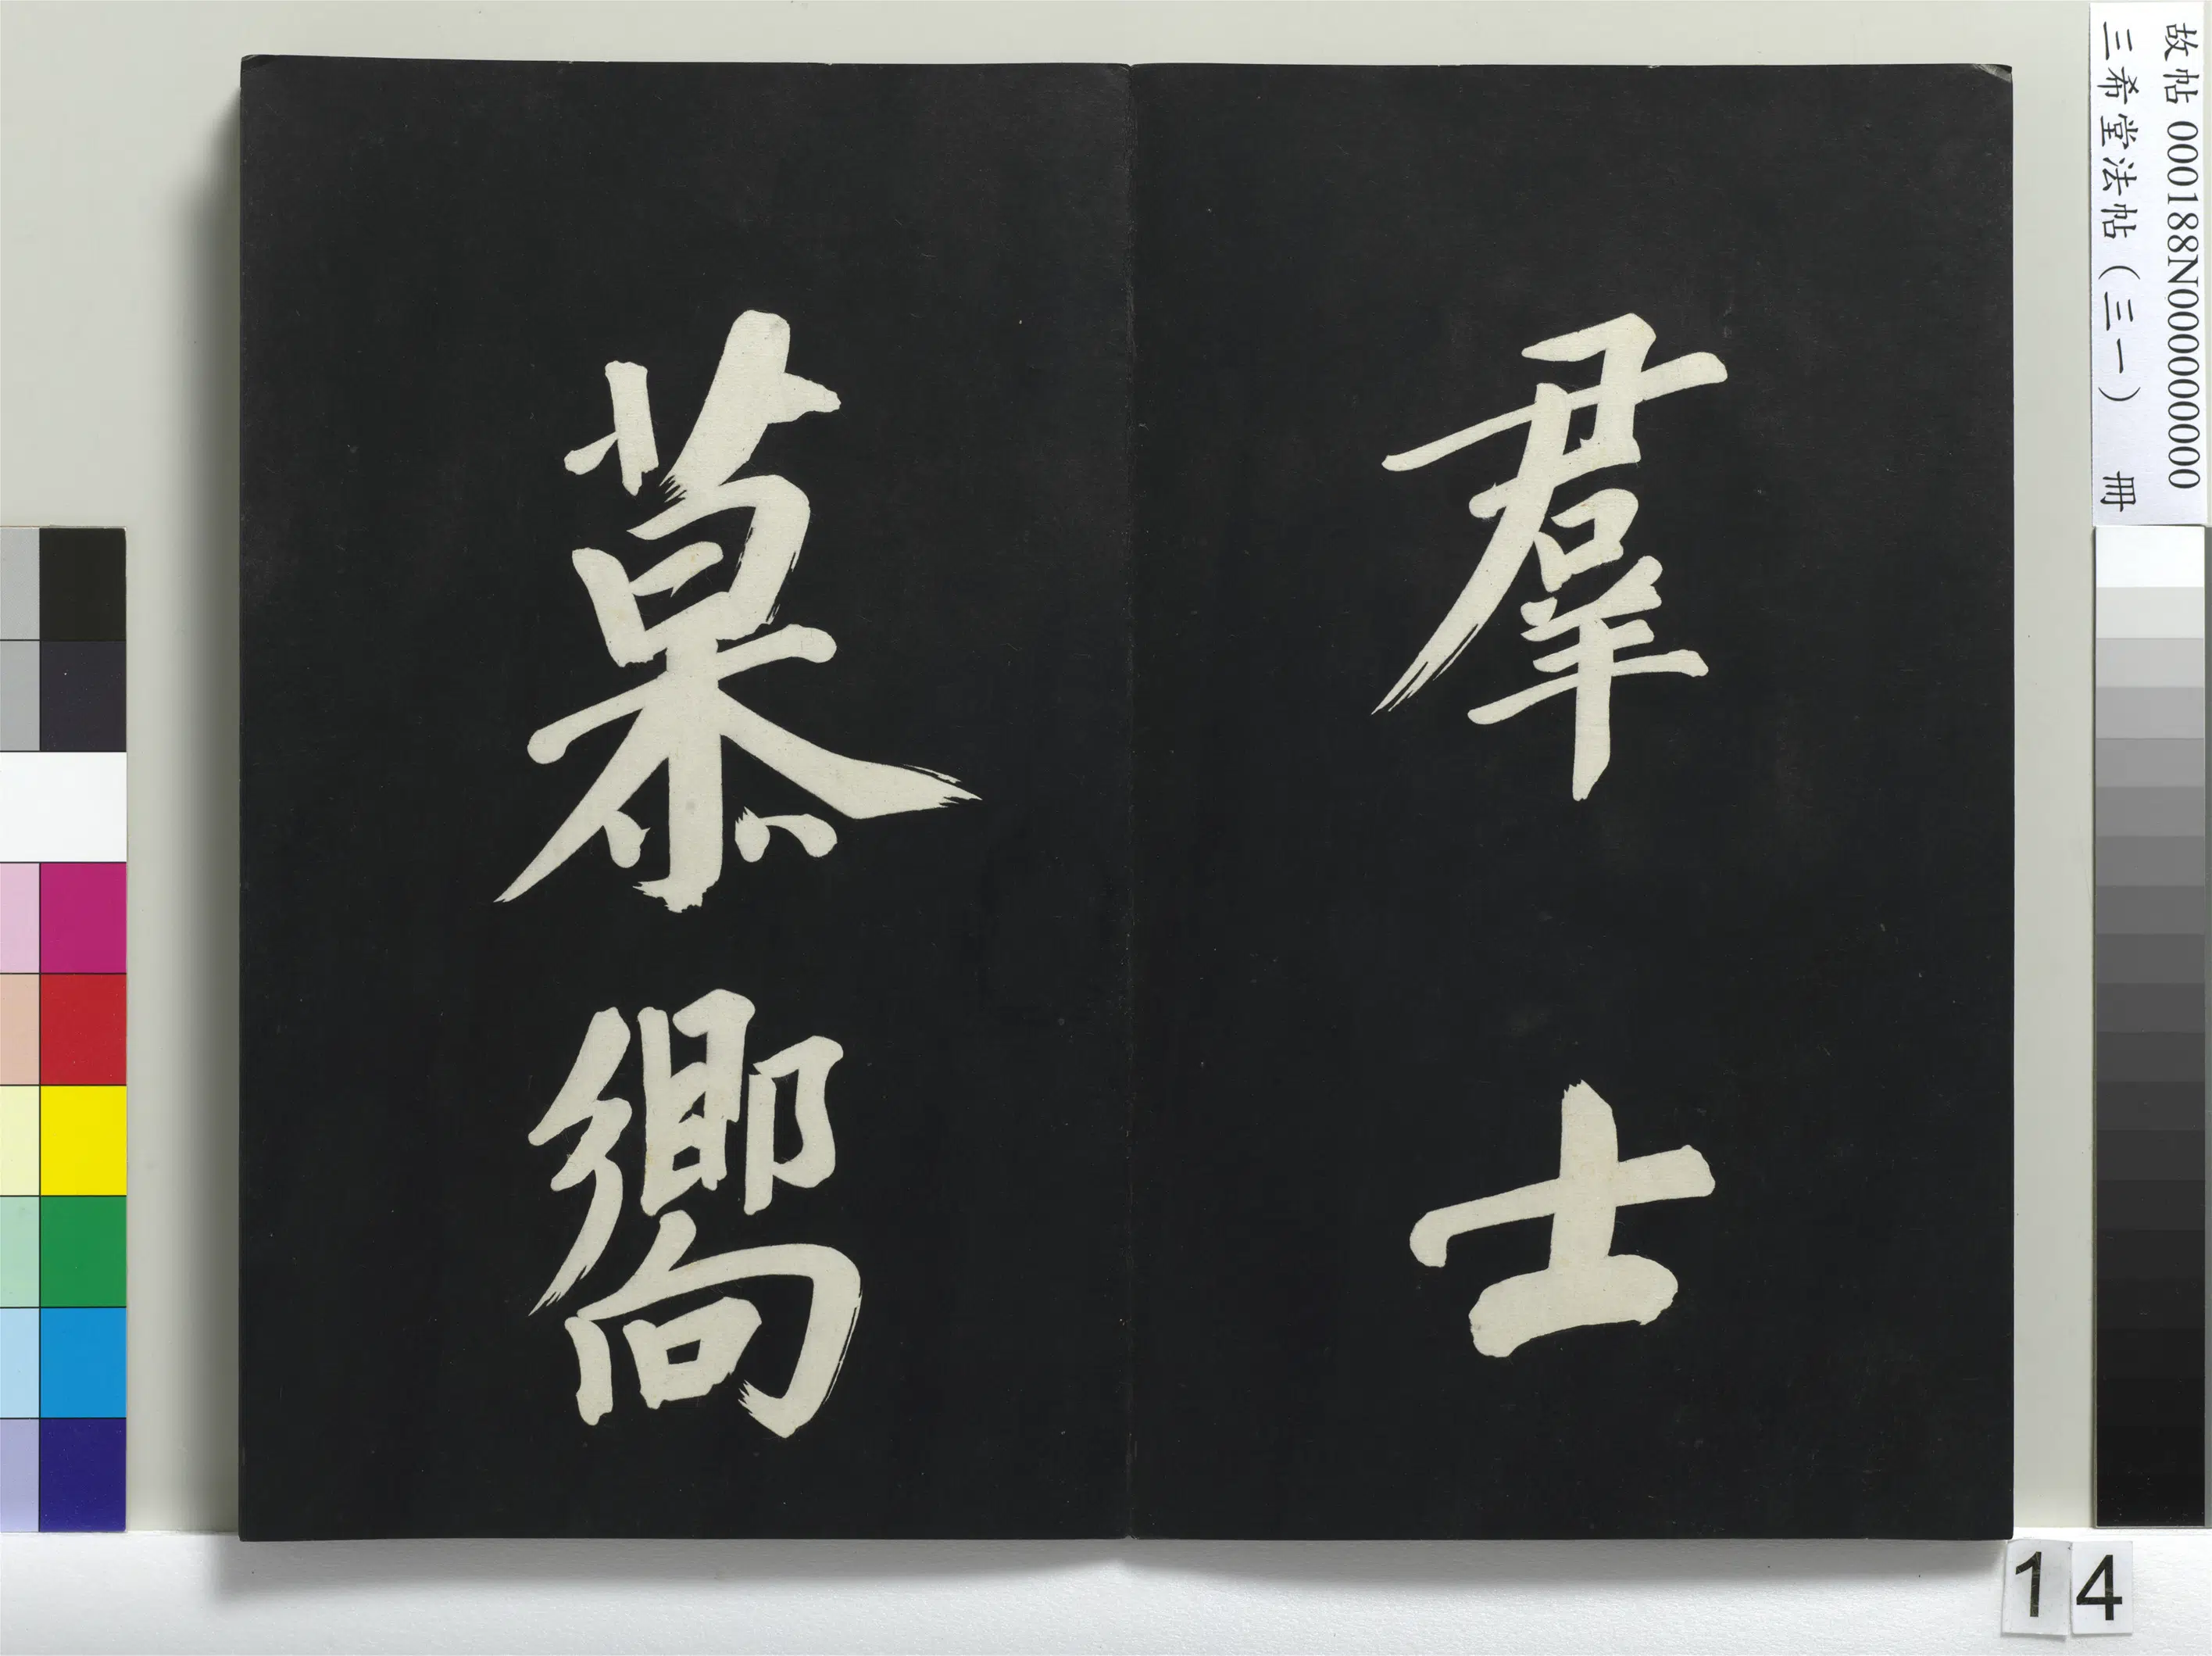 羣士
慕嚮
故帖 000188N000000000
三希堂法帖（三一） 冊
14